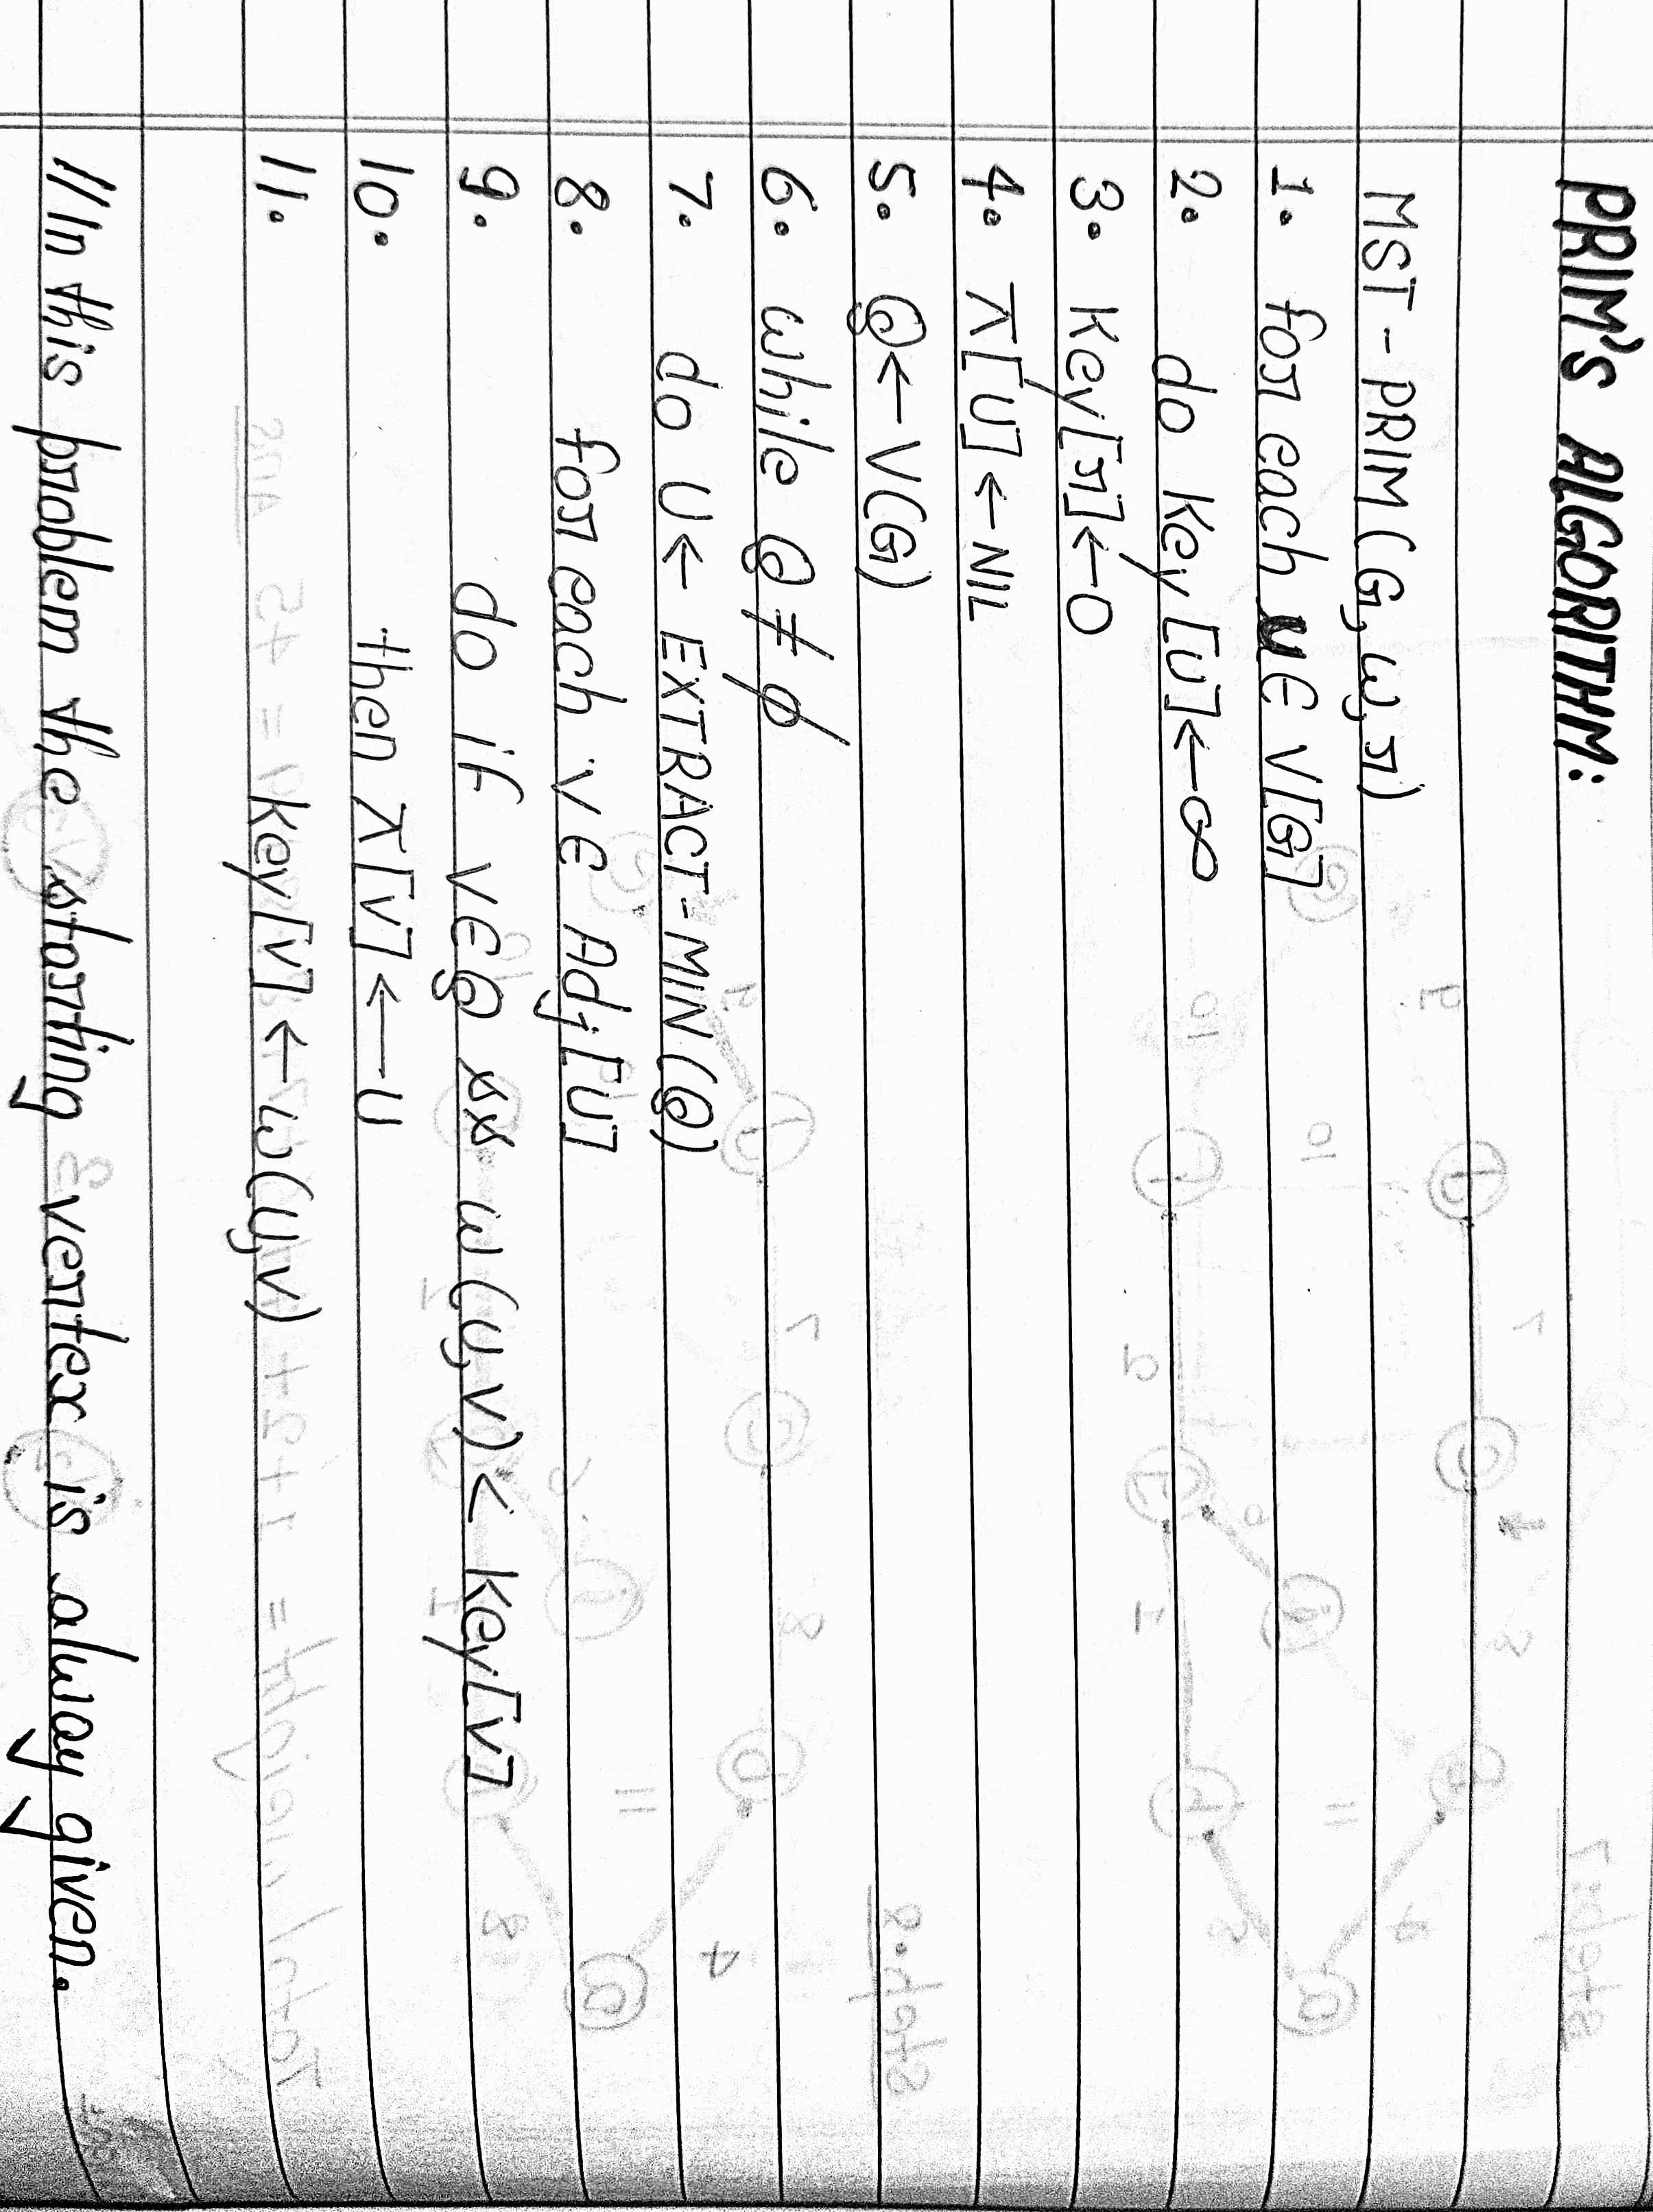 PRIM's ALGORITHM:
MST - PRIM (G, w, r)
1. for each u ∈ V[G]
2. do key[u] ← ∞
3. key[r] ← 0
4. π[u] ← NIL
5. Q ← V(G)
6. while Q ≠ ϕ
7. do u ← EXTRACT-MIN(Q)
8. for each v ∈ Adj[u]
9. do if v ∈ Q && w(u,v) < key[v]
10. then π[v] ← u
11. key[v] ← w(u,v)
//In this problem the starting vertex is alway given.